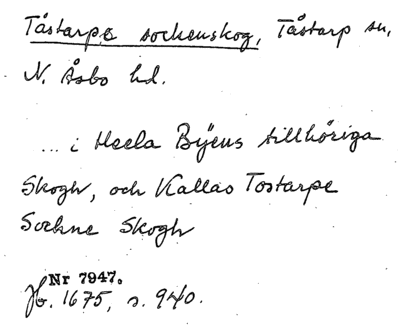 Tåstarps sockenskog, Tåstarp sn,
N. Åsbo hd.
... i Heela Bÿens tillhöriga
Skogh, och Kallas Tostarpe
Sochne Skogh
Nr 7947.
Jb. 1675, s. 940.